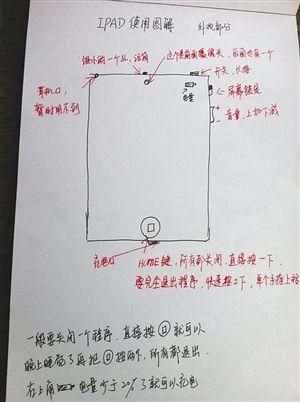 IPAD 使用图解 外观部分
很小的一个孔,话筒
这个是前面摄像头,后面也有一个
开关,长按
耳机口,
暂时用不到
电量
屏幕锁定
+
音量,上加下减
-
充电口
HOME键,所有都关闭,直接按一下.
要完全退出程序,快速按2下,单个手指上移
一般要关闭一个程序,直接按 就可以
晚上睡觉了再把 按两下,所有都退出.
右上角 电量少于20%了就可以充电